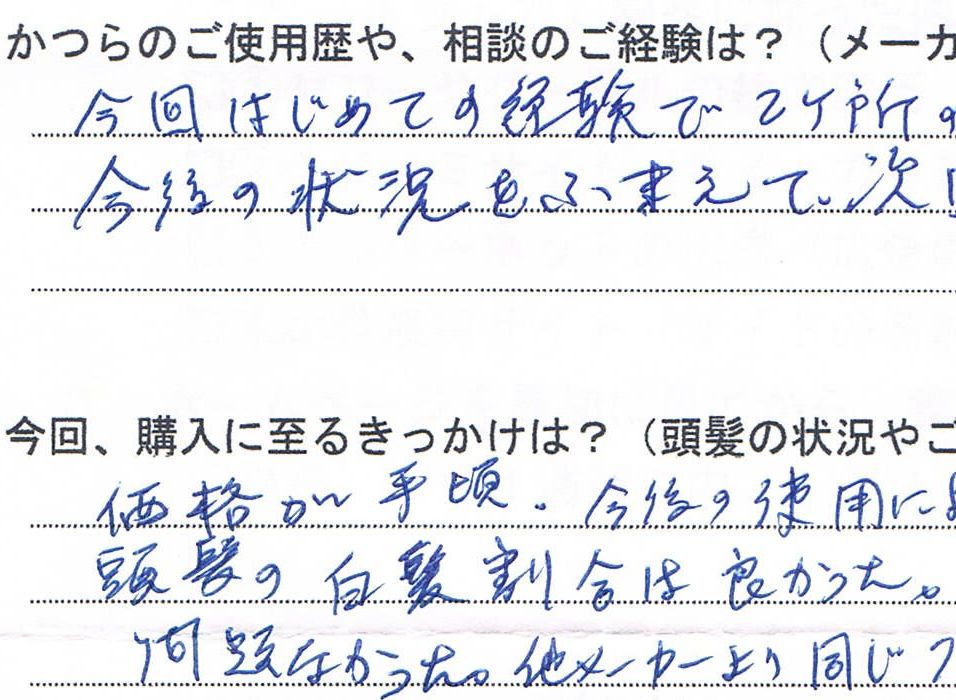 かつらのご使用歴や、相談のご経験は？（メーカ
今回はじめての経験で2ケ所の
今後の状況をふまえて、次に
今回、購入に至るきっかけは？（頭髪の状況やご
価格が手頃。今後の使用によ
頭髪の白髪割合は良かった。
問題なかった。他メーカーより同じ